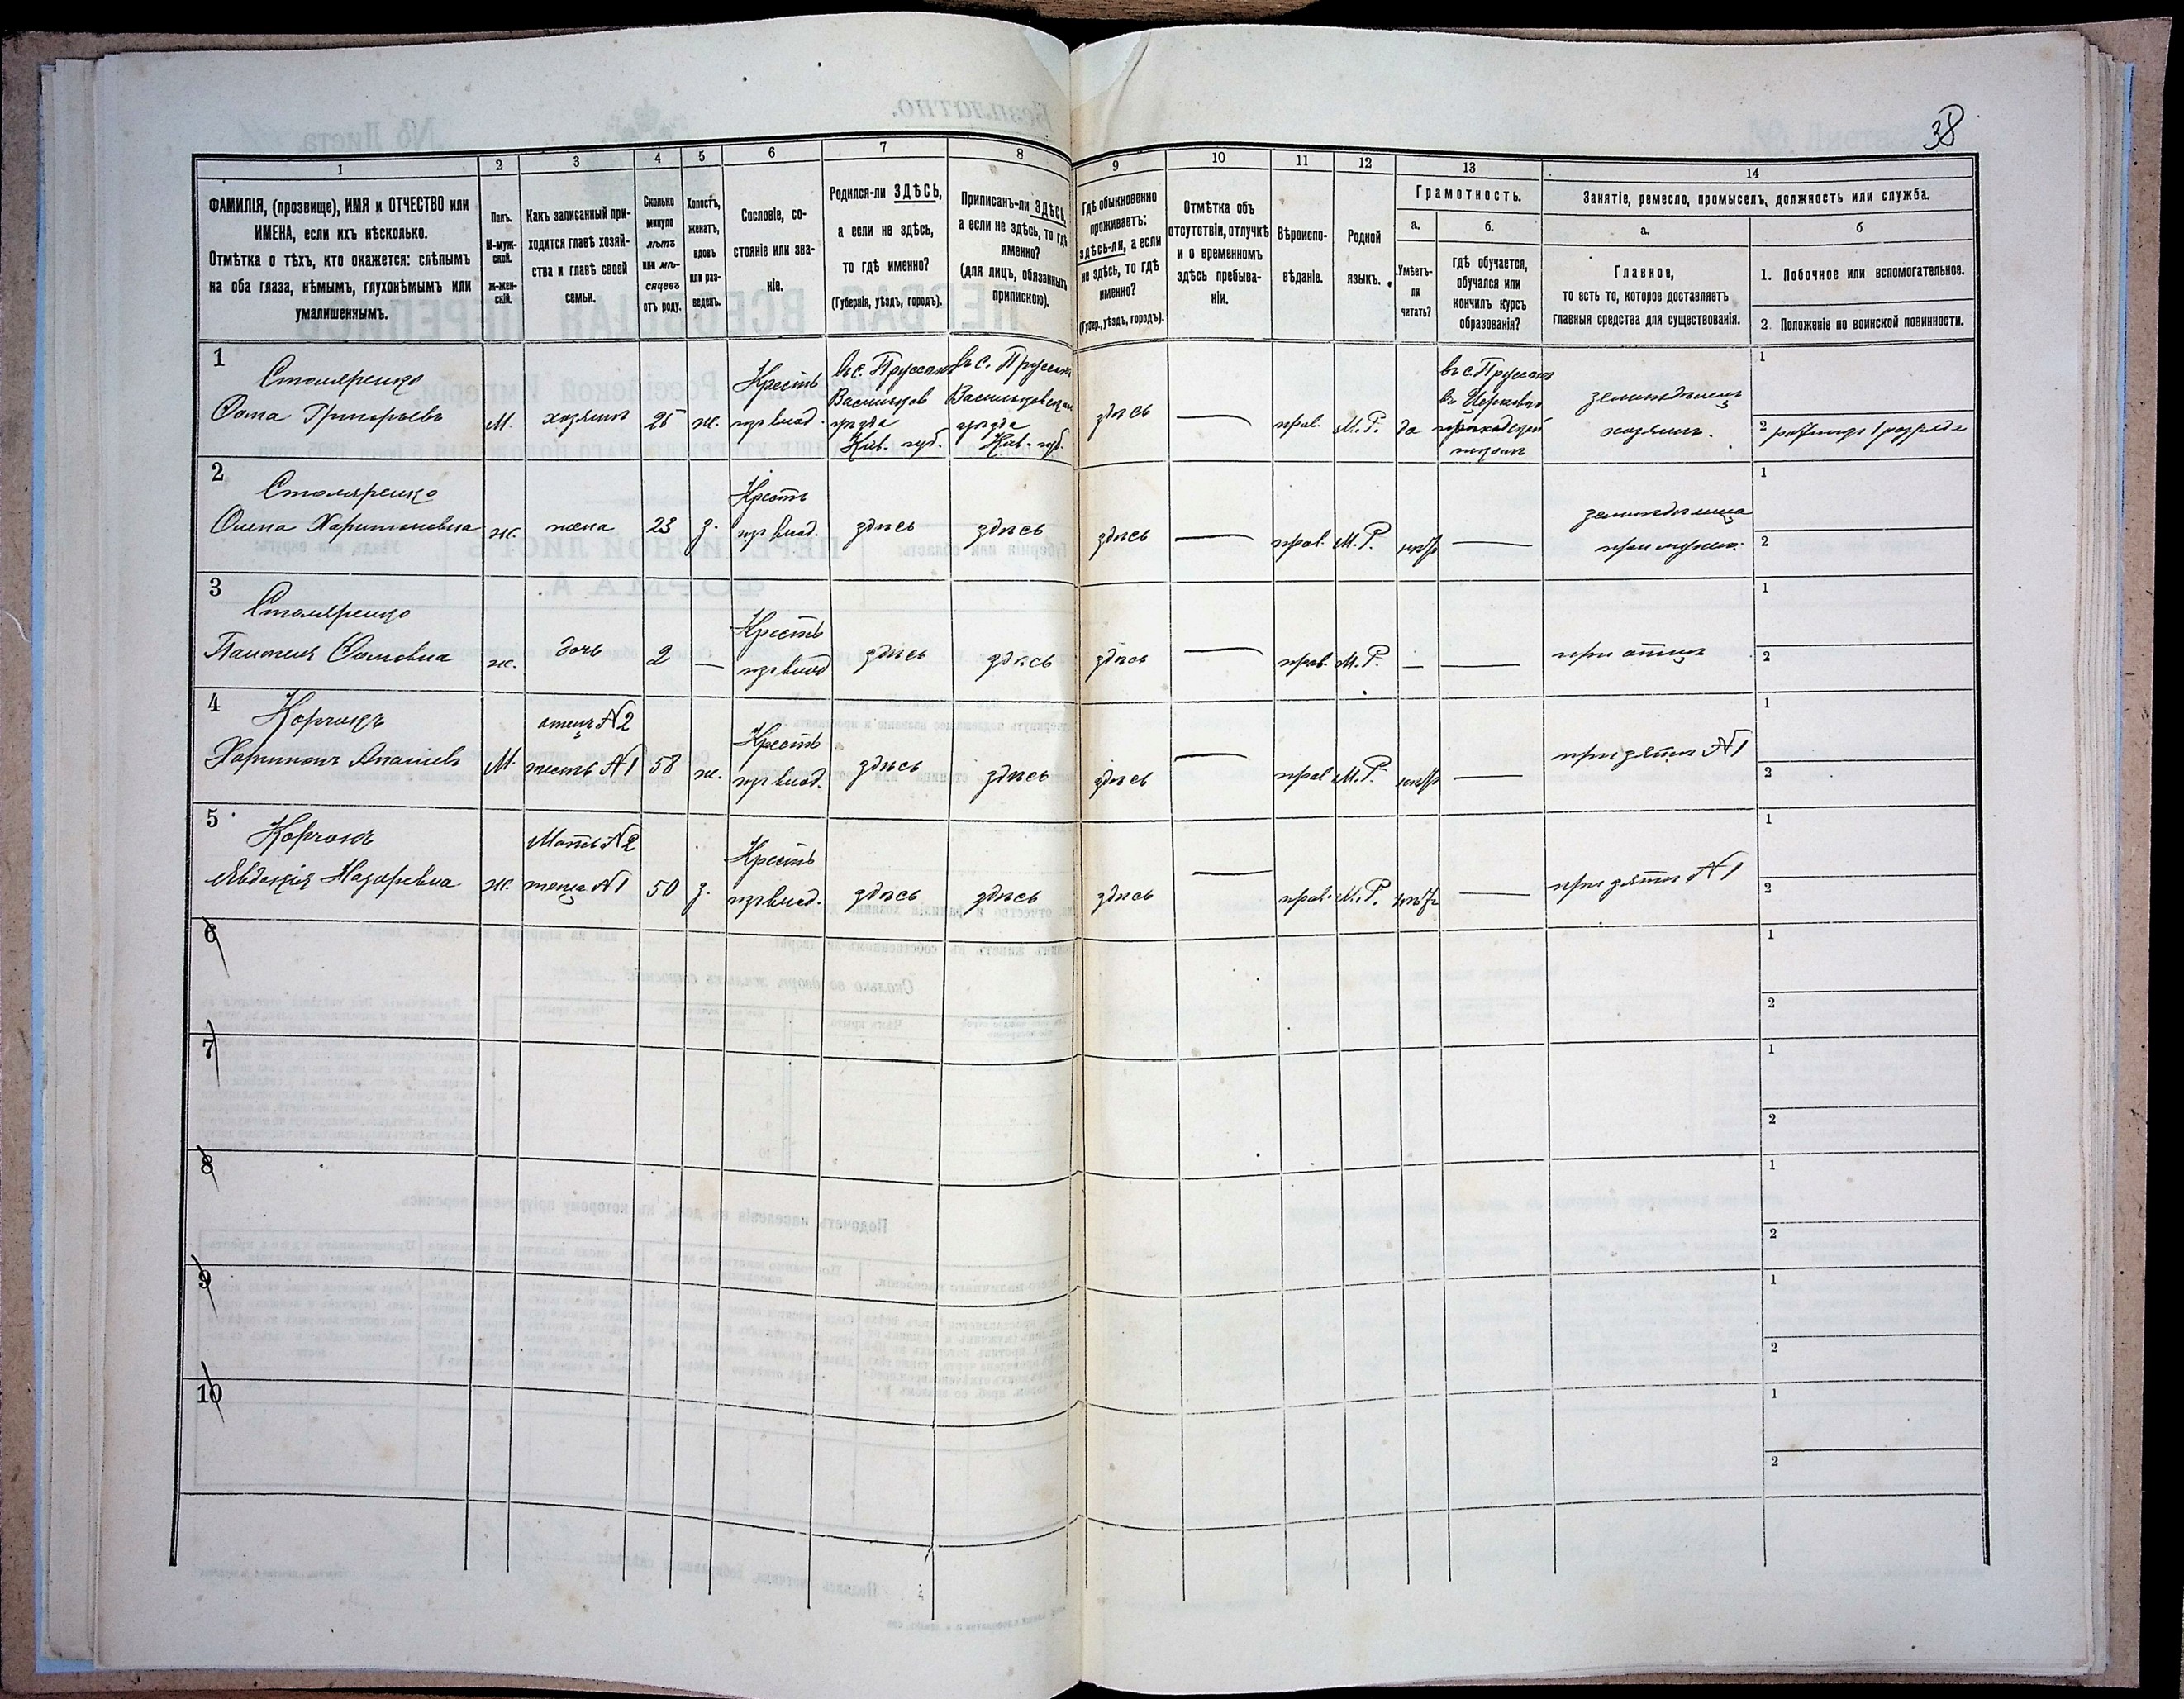 38
1 2 3 4 5 6 7 8 9 10 11 12 13 14
ФАМИЛІЯ, (прозвище), ИМЯ и ОТЧЕСТВО или
ИМЕНА, если ихъ нѣсколько.
Отмѣтка о тѣхъ, кто окажется: слѣпымъ
на оба глаза, нѣмымъ, глухонѣмымъ или
умалишеннымъ.
Полъ.
М-муж-
ской.
ж-жен-
скій.
Какъ записанный при-
ходится главѣ хозяй-
ства и главѣ своей
семьи.
Сколько
минуло
лѣтъ
или мѣ-
сяцевъ
отъ роду.
Холостъ,
женатъ,
вдовъ
или раз-
веденъ.
Сословіе, со-
стояніе или зва-
ніе.
Родился-ли ЗДѢСЬ,
а если не здѣсь,
то гдѣ именно?
(Губернія, уѣздъ, городъ).
Приписанъ-ли ЗДѢСЬ,
а если не здѣсь, то гдѣ
именно?
(для лицъ, обязанныхъ
припискою).
Гдѣ обыкновенно
проживаетъ:
здѣсь-ли, а если
не здѣсь, то гдѣ
именно?
(Губер., уѣздъ, городъ).
Отмѣтка объ
отсутствіи, отлучкѣ
и о временномъ
здѣсь пребыва-
ніи.
Вѣроиспо-
вѣданіе.
Родной
языкъ.
Грамотность.
а.
Умѣетъ-
ли
читать?
б.
гдѣ обучается,
обучался или
кончилъ курсъ
образованія?
Занятіе, ремесло, промыселъ, должность или служба.
а.
Главное,
то есть то, которое доставляетъ
главныя средства для существованія.
б
1. Побочное или вспомогательное.
2 Положеніе по воинской повинности.
1
Столяренко
Сома Григорьевъ
М.
хозяинъ
25
ж.
Крестъ
изъ влад.
въ с. Пруссахъ
Васильков
уѣзда
Кіев. губ.
въ с. Пруссахъ
Васильковскаго
уѣзда
Кіев. губ.
здѣсь
прав.
М.Р.
да
въ с. Пруссахъ
въ Церковно
приходской
школѣ
земледѣлецъ
хозяинъ.
1
2 ратникъ 1 разряда
2
Столяренко
Олена Харитоновна
ж.
жена
23
з.
Крестъ
изъ влад.
здѣсь
здѣсь
здѣсь
прав.
М.Р.
нѣтъ
земледѣлица
при мужѣ.
1
2
3
Столяренко
Сомовна
ж.
дочь
2
Крестъ
изъ влад
здѣсь
здѣсь
здѣсь
прав.
М.Р.
при отцѣ
1
2
4
Харитонъ
М.
отецъ N2
тесть N1
58
ж.
Крестъ
изъ влад.
здѣсь
здѣсь
здѣсь
прав
М.Р.
нѣтъ
при зятѣ N1
1
2
5
Евдокія Назаревна
ж.
Мать N2
теща N1
50
з.
Крестъ
изъ влад.
здѣсь
здѣсь
здѣсь
прав.
М.Р.
нѣтъ
при зятѣ N1
1
2
6
1
2
7
1
2
8
1
2
9
1
2
10
1
2